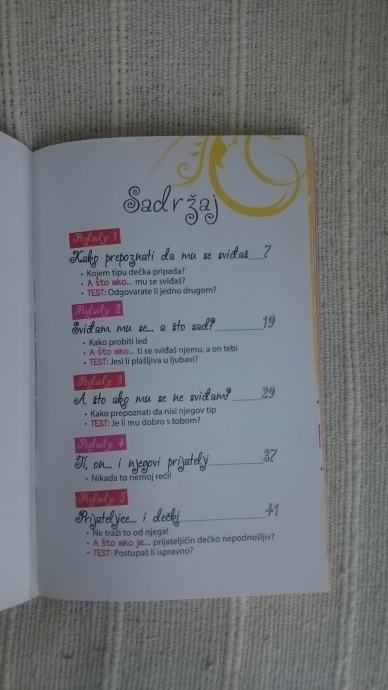 Sadržaj
Poglavlje 1
Kako prepoznati da mu se sviđaš......7
• Kojem tipu dečka pripada?
• A što ako... mu se sviđaš?
• TEST: Odgovarate li jedno drugom?
Poglavlje 2
Sviđam mu se... a što sad?......19
• Kako probiti led
• A što ako... ti se sviđaš njemu, a on tebi
• TEST: Jesi li plašljiva u ljubavi?
Poglavlje 3
A što ako mu se ne sviđam?......29
• Kako prepoznati da nisi njegov tip
• TEST: Je li mu dobro s tobom?
Poglavlje 4
Ti, on... i njegovi prijatelji......37
• Nikada to nemoj reći!
Poglavlje 5
Prijateljice... i dečki......41
• Ne traži to od njega!
• A što ako je... prijateljičin dečko nepodnošljiv?
• TEST: Postupaš li ispravno?